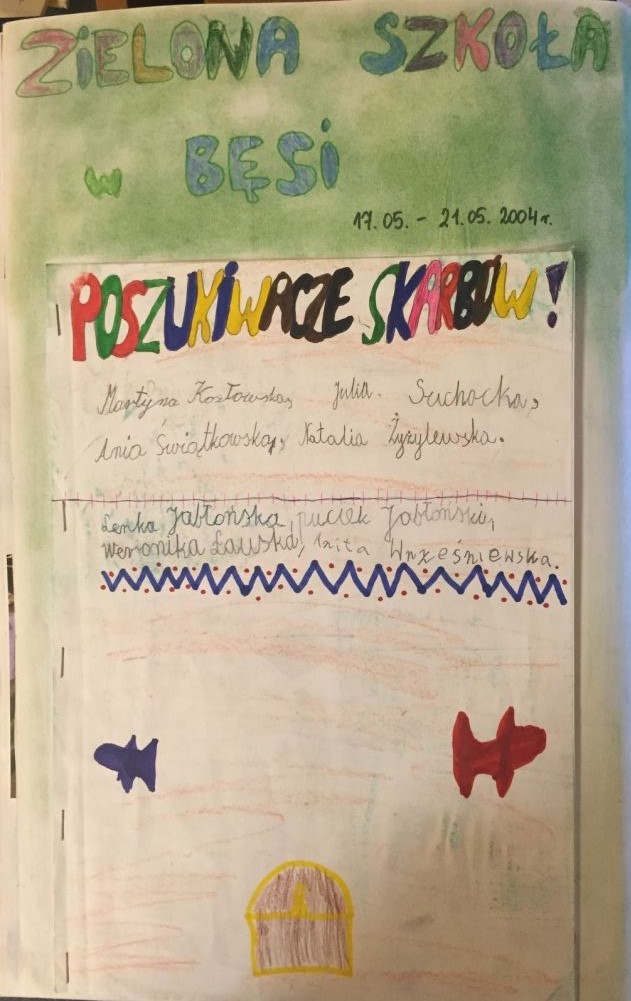 ZIELONA SZKOŁA
w BĘSI
17.05. - 21.05. 2004r.
POSZUKIWACZE SKARBÓW!
Martyna Kozłowska, Julia. Suchocka,
Ania Świątkowska, Natalia Żyzylewska.
Lenka Jabłońska, puciek Jabłoński,
Weronika Ławska, Anita Wrześniewska.